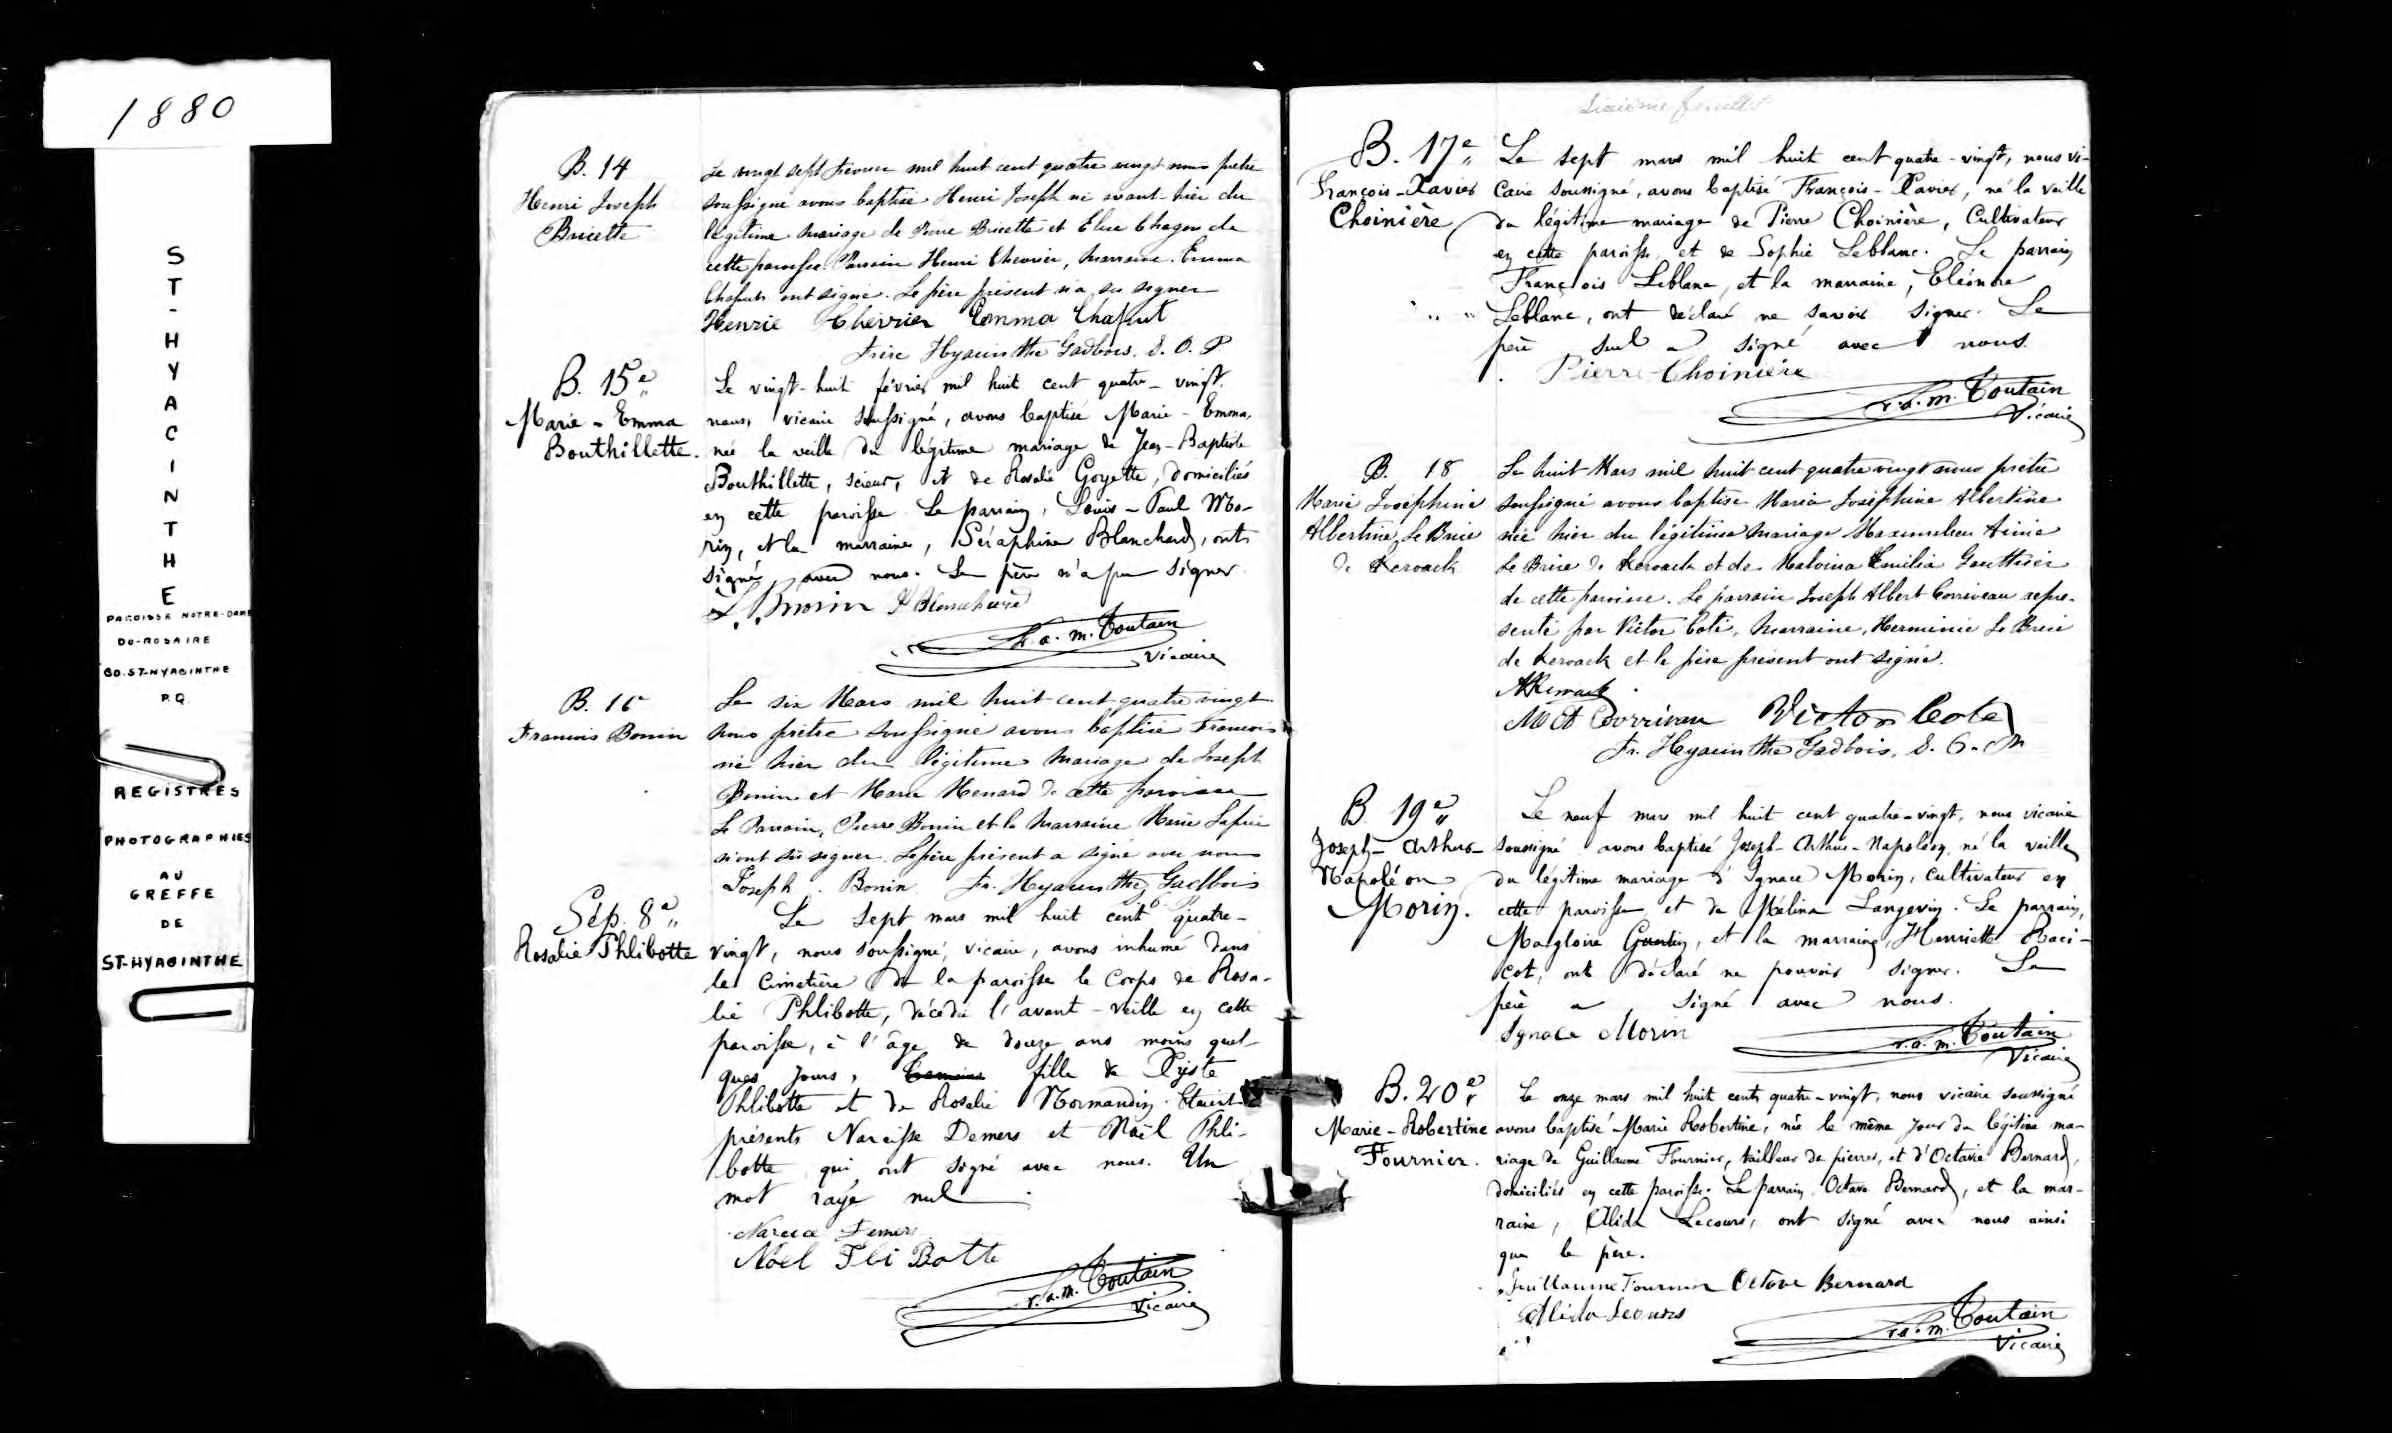 1880
ST-HYACINTHE
PAROISSE NOTRE-DAME
DU-ROSAIRE
CO. ST-HYACINTHE
P.Q.
REGISTRES
PHOTOGRAPHIES
AU
GREFFE
DE
ST-HYACINTHE
B. 14
Henri Joseph
Bricette
Le vingt sept février mil huit cent quatre vingt nous prêtre
soussigné avons baptisé Henri Joseph né avant-hier du
légitime mariage de Pierre Bricette et Elise Chagon de
cette paroisse. Parrain Henri Chevrier, marraine Emma
Chaput ont signé. Le père présent n'a su signer
Henrie Chevrier Emma Chaput
Frère Hyacinthe Gadbois. S. O. P
B. 15e
Marie-Emma
Bouthillette.
Le vingt-huit février mil huit cent quatre-vingt,
nous, vicaire soussigné, avons baptisé Marie-Emma,
née la veille du légitime mariage de Jean-Baptiste
Bouthillette, scieur, et de Rosalie Goyette, domiciliés
en cette paroisse. Le parrain, Louis-Paul Mo-
rin, et la marraine, Séraphine Blanchard, ont
signé avec nous. Le père n'a pu signer
L. P. Morin S Blanchard
r. a. m. Coutain
Vicaire
B. 16
Francois Bonin
Le six Mars mil huit cent quatre vingt
nous prêtre soussigné avons baptisé Francois
né hier du légitime mariage de Joseph
Bonin et Marie Menard de cette paroisse
Le Parrain, Pierre Bonin et la Marraine Marie
n'ont su signer. Le père présent a signé avec nous
Joseph Bonin Fr. Hyacinthe Gadbois
Sép. 8e
Rosalie Phlibotte
Le sept mars mil huit cent quatre-
vingt, nous soussigné, vicaire, avons inhumé dans
le Cimetière de la paroisse le Corps de Rosa-
lie Phlibotte, décédée l'avant-veille en cette
paroisse, à l'âge de douze ans moins quel-
ques jours, fille de Xyste
Phlibotte et de Rosalie Normandin. Etaient
présents Narcisse Demers et Noël Phli-
botte qui ont signé avec nous. Un
mot rayé nul
Narcice Demers
Noel Fli Botte
r. a. m. Coutain
Vicaire
Sixième feuillet
B. 17e
François-Xavier
Choinière
Le sept mars mil huit cent quatre-vingt, nous vi-
caire soussigné, avons baptisé François-Xavier, né la veille
du légitime mariage de Pierre Choinière, Cultivateur
en cette paroisse, et de Sophie Leblanc. Le parrain
François Leblanc, et la marraine, Eléonore
Leblanc, ont déclaré ne savoir signer. Le
père seul a signé avec nous.
Pierre Choiniere
r. a. m. Coutain
Vicaire
B. 18
Marie Joséphine
Albertine Le Brice
de Keroack
Le huit Mars mil huit cent quatre vingt nous prêtre
soussigné avons baptisé Maria Joséphine Albertine
née hier du légitime mariage Maximilien Aimé
Le Brice de Keroack et de Malvina Emilia Gauthier
de cette paroisse. Le parrain Joseph Albert Corriveau repre-
senté par Victor Coté, Marraine, Herminie Le Brice
de Keroack et le père présent ont signé.
Corriveau Victor Cote
Fr. Hyacinthe Gadbois.
B 19e
Joseph-Arthur-
Napoléon
Morin.
Le neuf mars mil huit cent quatre-vingt, nous vicaire
soussigné avons baptisé Joseph-Arthur-Napoléon, né la veille
du légitime mariage d'Ignace Morin, Cultivateur en
cette paroisse et de Mélina Langevin. Le parrain,
Magloire, et la marraine, Henriette Raci-
cot, ont déclaré ne pouvoir signer. Le
père a signé avec nous.
Ignace Morin
r. a. m. Coutain
Vicaire
B. 20e
Marie-Robertine
Fournier.
Le onze mars mil huit cent quatre-vingt, nous vicaire soussigné
avons baptisé Marie Robertine, née le même jour du légitime ma-
riage de Guillaume Fournier, tailleur de pierres, et d'Octavie Bernard,
domiciliés en cette paroisse. Le parrain Octave Bernard, et la mar-
raine, Alida Lecours, ont signé avec nous ainsi
que le père.
Guillaume Fournier Octave Bernard
Alida Lecours
r. a. m. Coutain
Vicaire